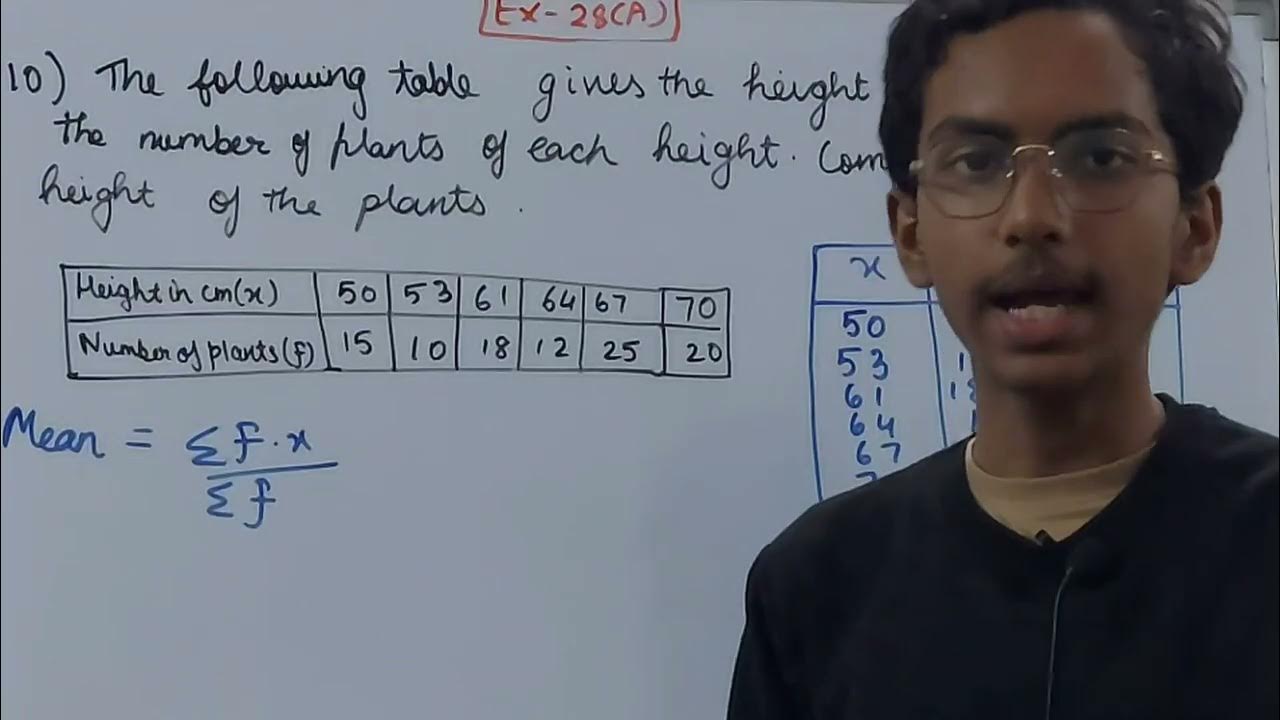 Ex-28(A)
10) The following table gives the height
the number of plants of each height.
height of the plants.
Height in cm(x) 50 53 61 64 67 70
Number of plants(f) 15 10 18 12 25 20
Mean = Σf.x
Σf
x
50
53
61
64
67